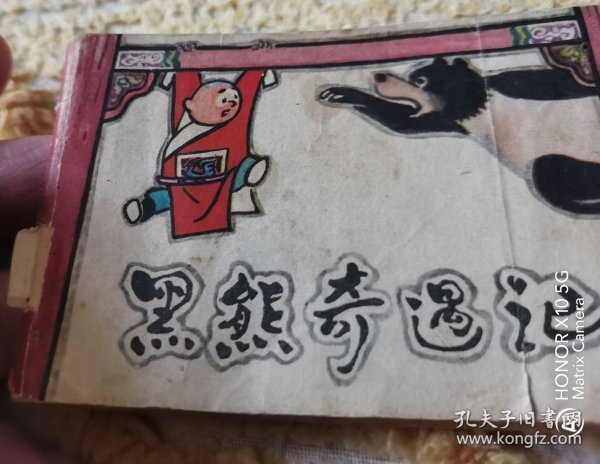 黑熊奇遇记
HONOR X10 5G
Matrix Camera
孔夫子旧书网
www.kongfz.com